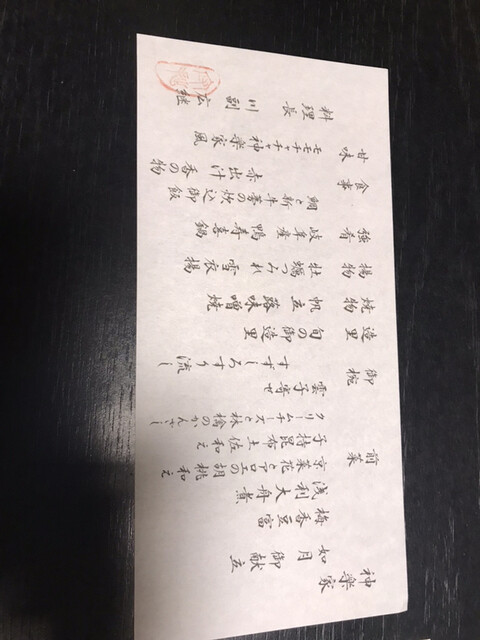 神楽家
如月御献立
前菜
梅香豆富
浅利大舟煮
京菜花とアロエの胡桃和え
子持昆布土佐和え
クリームチーズと林檎のかんざし
御椀
雲子寄せ
すずしろすり流し
造里
旬の御造里
焼物
帆立蕗味噌焼
揚物
牡蠣つみれ雪衣揚
強肴
岐阜産鴨寿喜鍋
食事
鯛と新牛蒡の炊込御飯
赤出汁
香の物
甘味
モモチャチャ神楽家風
料理長
川副広継